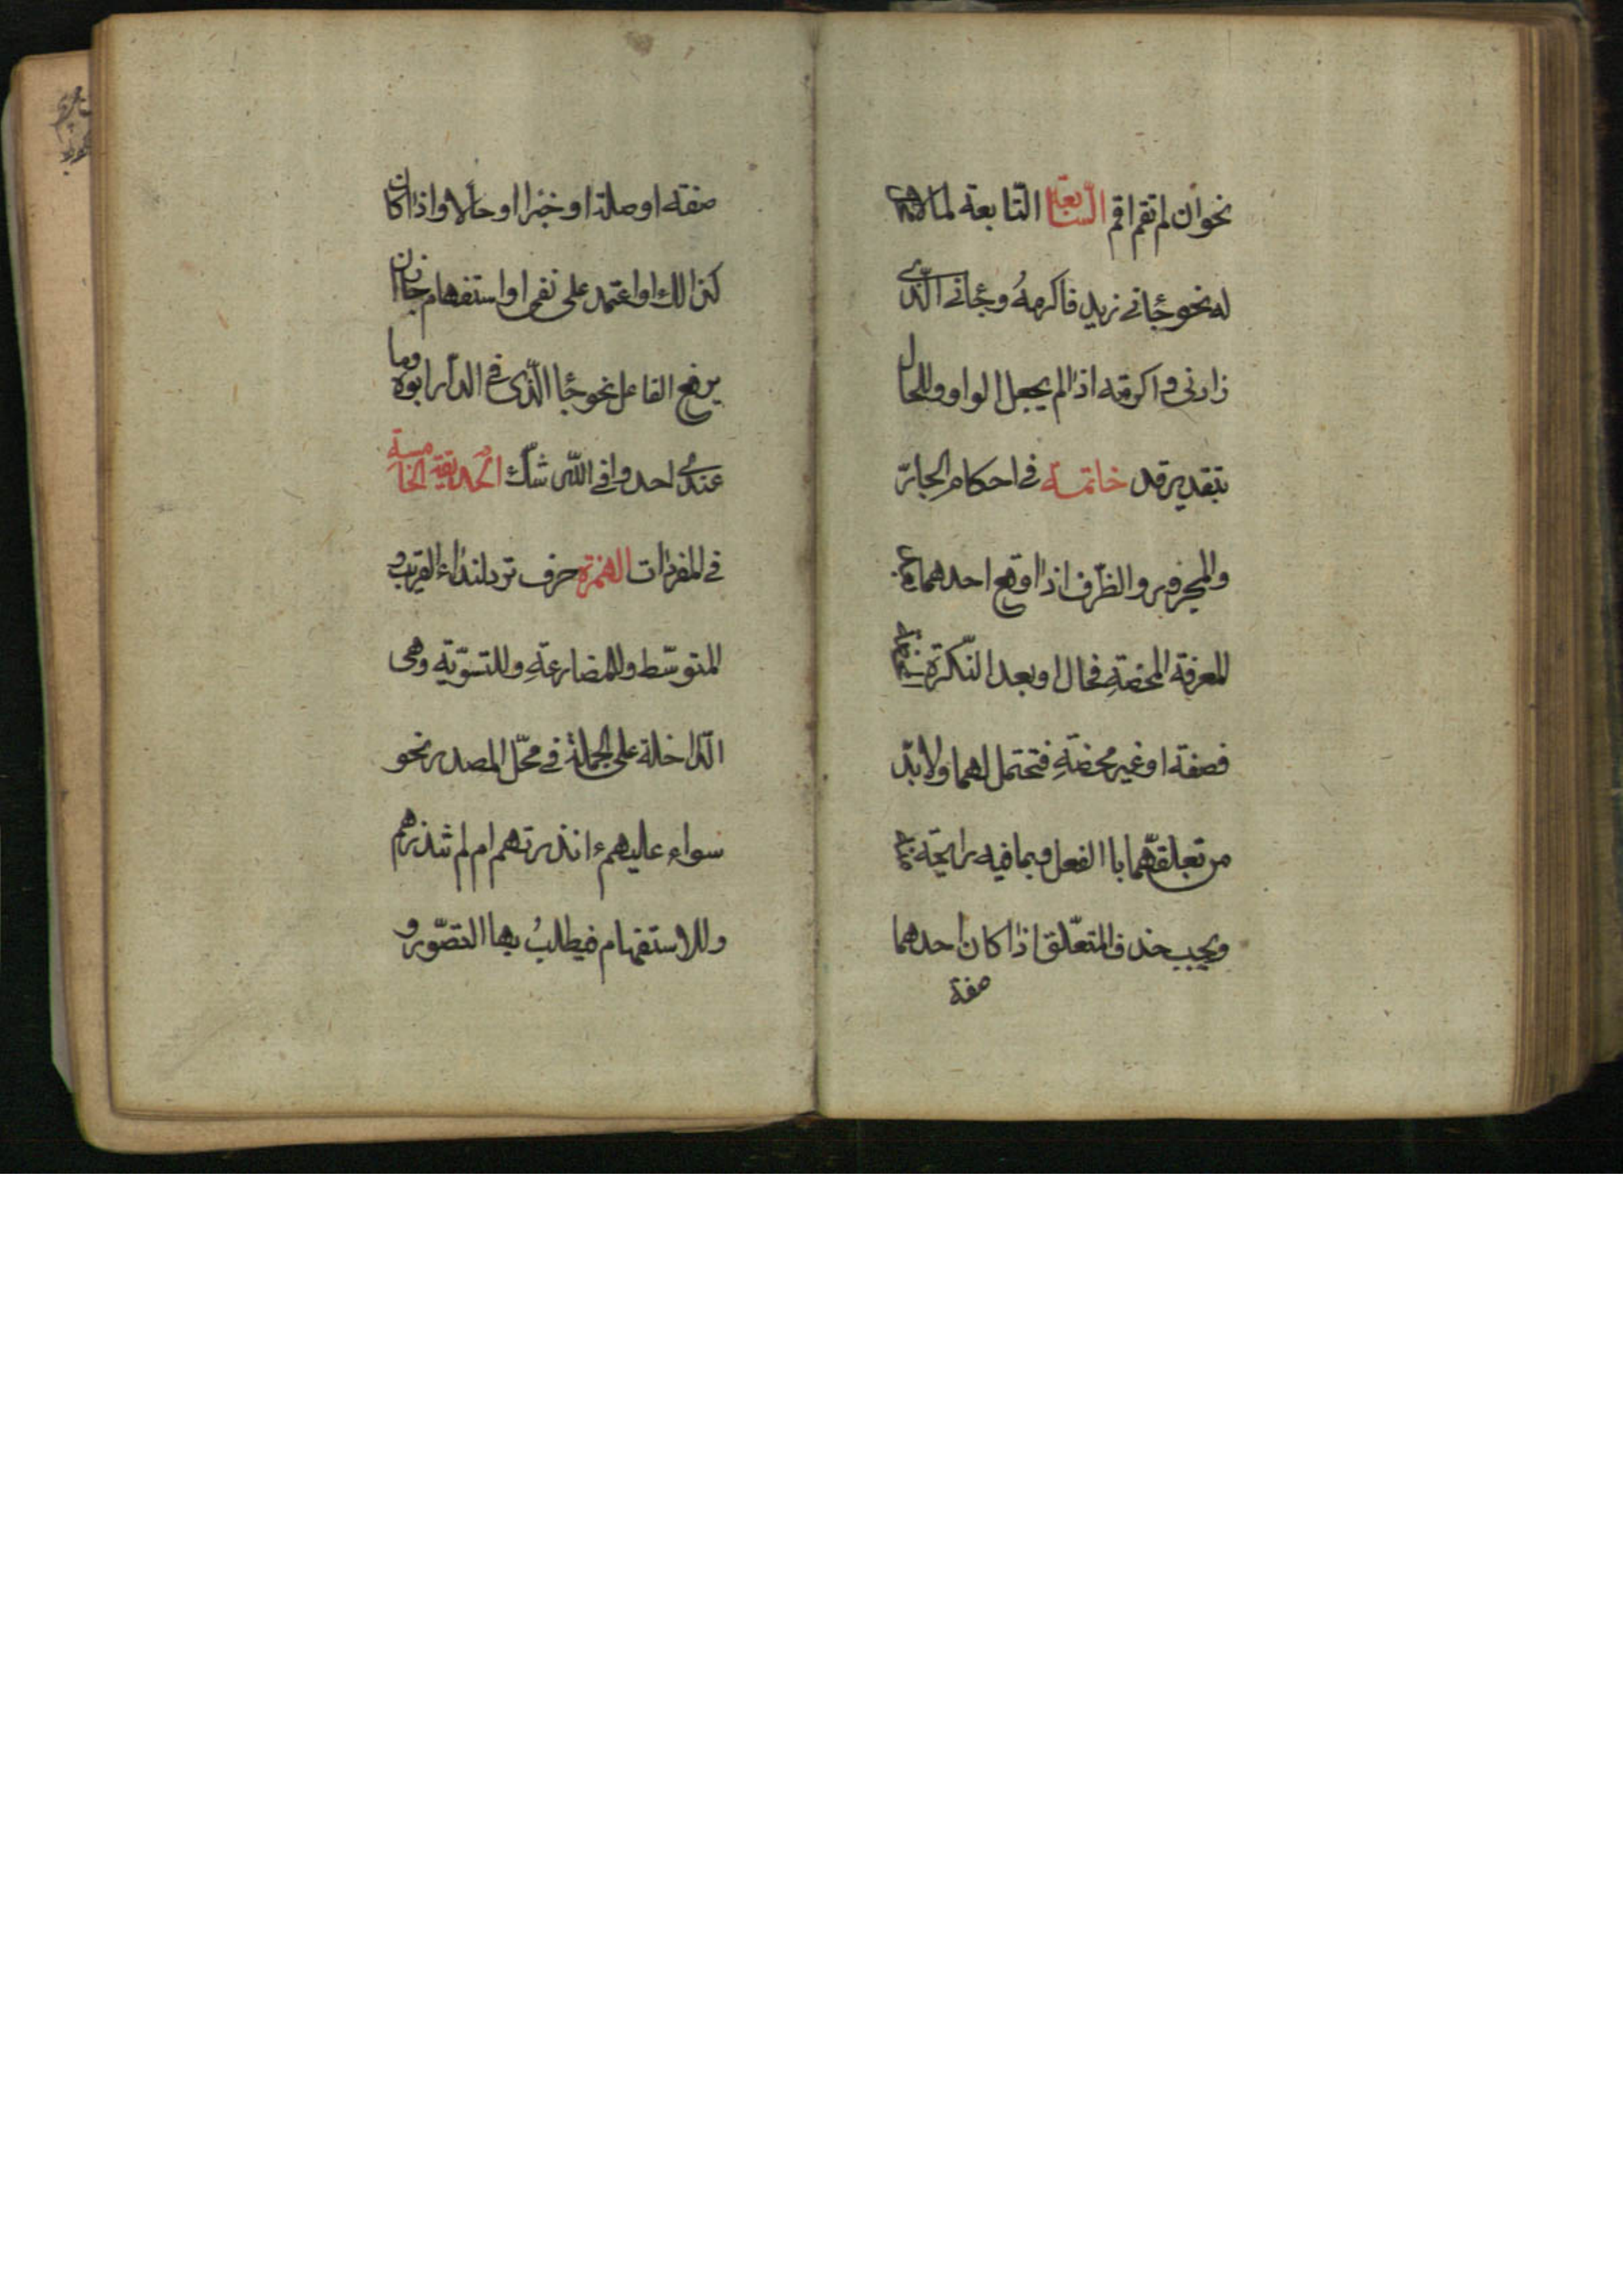 نحو ان لم تقم اقم السّابعة التّابعة لما لا محل
له نحو جٔانى زيد فاكرمهُ وجٔانى الّذى
زارنى واكرمته اذا لم يجعل الواو وللحال
بتقدير قد خاتمة فى احكام الجارّ
والمجرور والظّرف اذا اوقع احدهما بعد
المعرفة المحضةِ فحال او بعد النّكرة
فصفة او غير محضةِ فتحتمل لهما ولا بدّ
من تعلّقهما باالفعل وبما فيه رايحته
ويجب حذف المتعّلق اذا كان احدهما
صفة
صفته او صلة او خبرا او حالا واذا كان
كذالك او اعتمد على نفى او استفهام جاز ان
يرفع الفاعل نحو جٔا الّذى فى الدّار ابوه وما
عندى احد وافى اللّه شكّ الحديقة الخامسة
فى المفردات الهمزة حرف ترد لنداء القريب و
المتوسّط وللمضارعةِ وللتسوّية وهى
الدّاخلة على الجملة فى محّل المصدر نحو
سواء عليهم ءانذرتهم ام لم تنذرهم
وللاستفهام فيطلبُ بها التصّور و